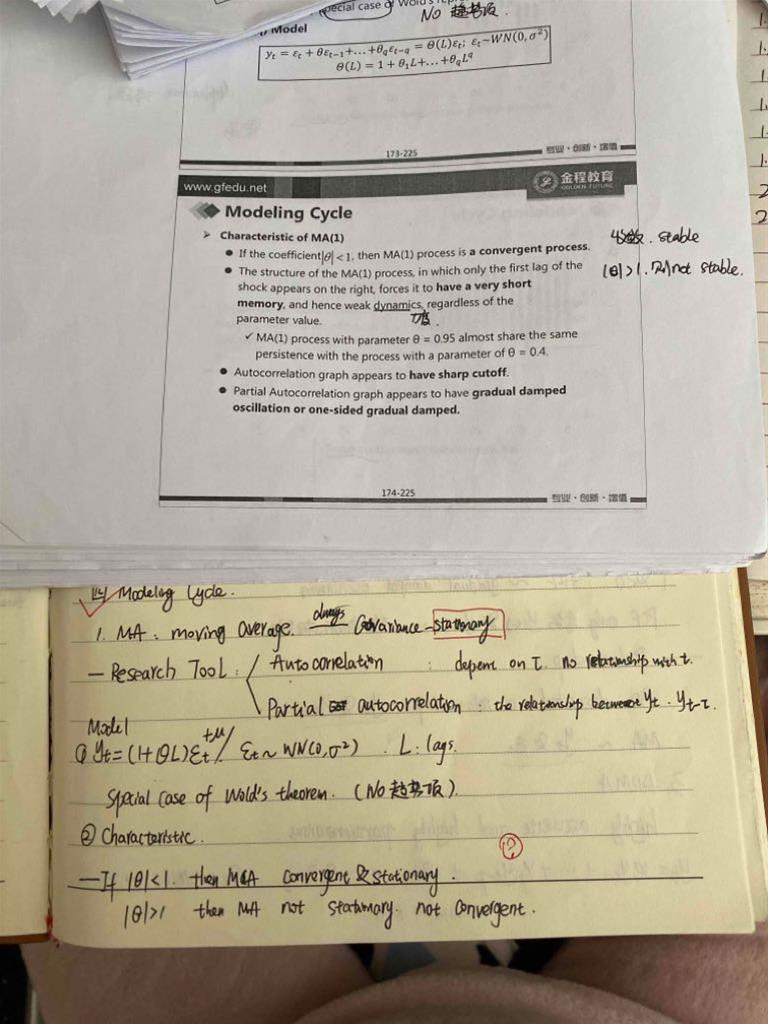 pecial case of Wold's
NO 趋势项.
Model
yt = εt + θεt−1+…+θqεt−q = Θ(L)εt; εt~WN(0,σ²)
Θ(L) = 1 + θ1L+…+θqL^q
173-225
专业·创新·增值
www.gfedu.net
金程教育
GOLDEN FUTURE
Modeling Cycle
➢ Characteristic of MA(1)
● If the coefficient|θ| < 1, then MA(1) process is a convergent process.
收敛. stable
● The structure of the MA(1) process, in which only the first lag of the
|θ|>1. 则not stable.
shock appears on the right, forces it to have a very short
memory, and hence weak dynamics, regardless of the
parameter value.
✓ MA(1) process with parameter θ = 0.95 almost share the same
persistence with the process with a parameter of θ = 0.4.
● Autocorrelation graph appears to have sharp cutoff.
● Partial Autocorrelation graph appears to have gradual damped
oscillation or one-sided gradual damped.
174-225
专业·创新·增值
Modeling Cycle.
1. MA. moving average. always Covariance-stationary
— Research Tool: Autocorrelation : depent on τ. no relationship with t.
Partial autocorrelation : the relationship between yt. yt-τ.
Model
① yt=(1+θL)εt+μ/ εt~WN(0,σ²). L: lags.
Special case of Wold's theorem. (No 趋势项)
② Characteristic.
—If |θ|<1. then MA Convergent & stationary.
|θ|>1 then MA not stationary. not convergent.